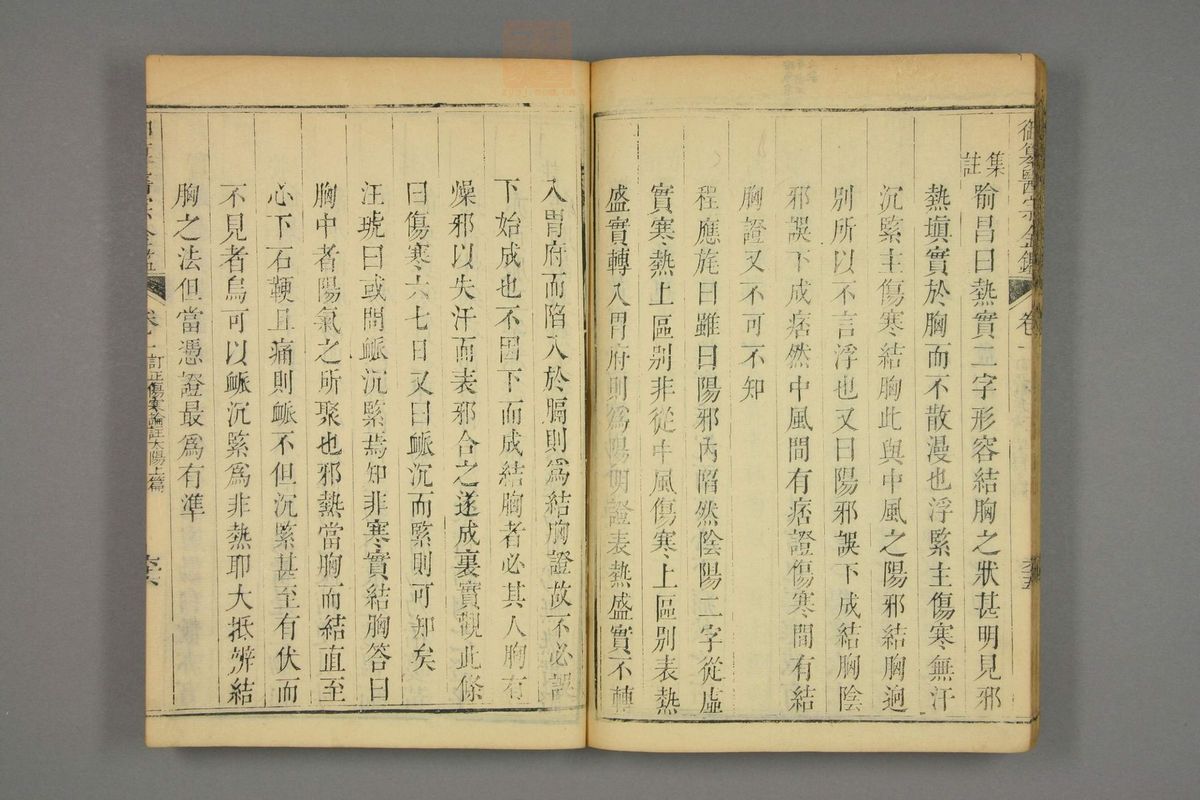 御纂醫宗金鑑 卷一
集註
喻昌曰熱實二字形容結胸之狀甚明見邪
熱塡實於胸而不散漫也浮緊主傷寒無汗
沉緊主傷寒結胸此與中風之陽邪結胸迥
別所以不言浮也又曰陽邪誤下成結胸陰
邪誤下成痞然中風間有痞證傷寒間有結
胸證又不可不知
程應旄曰雖曰陽邪內陷然陰陽二字從虛
實寒熱上區别非從中風傷寒上區别表熱
盛實轉入胃府則爲陽明證表熱盛實不轉
入胃府而陷入於膈則爲結胸證故不必誤
下始成也不因下而成結胸者必其人胸有
燥邪以失汗而表邪合之遂成裏實觀此條
曰傷寒六七日又曰脈沉而緊則可知矣
汪琥曰或問脈沉緊焉知非寒實結胸答曰
胸中者陽氣之所聚也邪熱當胸而結直至
心下石鞕且痛則脈不但沉緊甚至有伏而
不見者烏可以脈沉緊爲非熱耶大抵辨結
胸之法但當憑證最爲有準
卷一 訂正傷寒論註太陽上篇